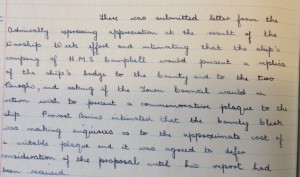 There was submitted letter from the
Admiralty expressing appreciation at the result of the
Warship Week effort and intimating that the ship's
company of H.M.S. Campbell would present a replica
of the ship's badge to the County and to the two
Burghs, and asking if the Town Council would in
return wish to present a commemorative plaque to the
ship. Provost Binns intimated that the County Clerk
was making inquiries as to the approximate cost of
a suitable plaque and it was agreed to defer
consideration of the proposal until his report had
been received.